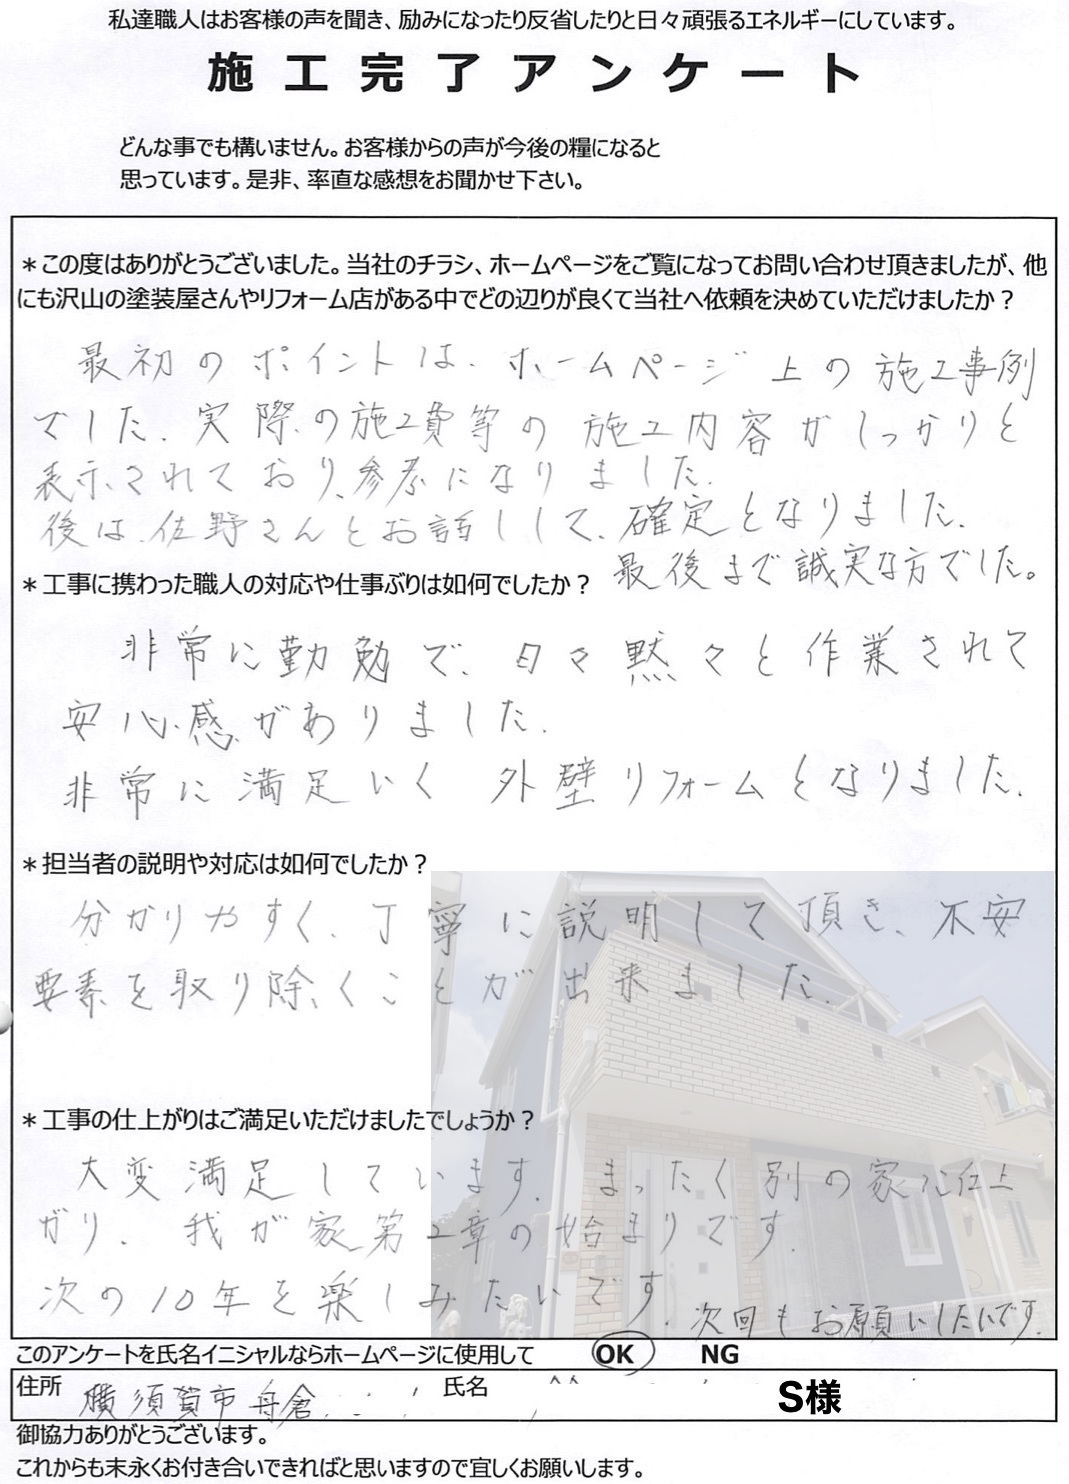 私達職人はお客様の声を聞き、励みになったり反省したりと日々頑張るエネルギーにしています。
施工完了アンケート
どんな事でも構いません。お客様からの声が今後の糧になると
思っています。是非、率直な感想をお聞かせ下さい。
＊この度はありがとうございました。当社のチラシ、ホームページをご覧になってお問い合わせ頂きましたが、他
にも沢山の塗装屋さんやリフォーム店がある中でどの辺りが良くて当社へ依頼を決めていただけましたか？
最初のポイントは、ホームページ上の施工事例
でした。実際の施工費等の施工内容がしっかりと
表示されており、参考になりました。
後は、佐野さんとお話しして、確定となりました。
最後まで誠実な方でした。
＊工事に携わった職人の対応や仕事ぶりは如何でしたか？
非常に勤勉で、日々黙々と作業されて
安心感がありました。
非常に満足いく外壁リフォームとなりました。
＊担当者の説明や対応は如何でしたか？
分かりやすく、丁寧に説明して頂き、不安
要素を取り除くことが出来ました。
＊工事の仕上がりはご満足いただけましたでしょうか？
大変満足しています。まったく別の家に仕上
がり、我が家第2章の始まりです。
次の10年を楽しみたいです。次回もお願いしたいです。
このアンケートを氏名イニシャルならホームページに使用して OK NG
住所 横須賀市舟倉 氏名 S様
御協力ありがとうございます。
これからも末永くお付き合いできればと思いますので宜しくお願いします。